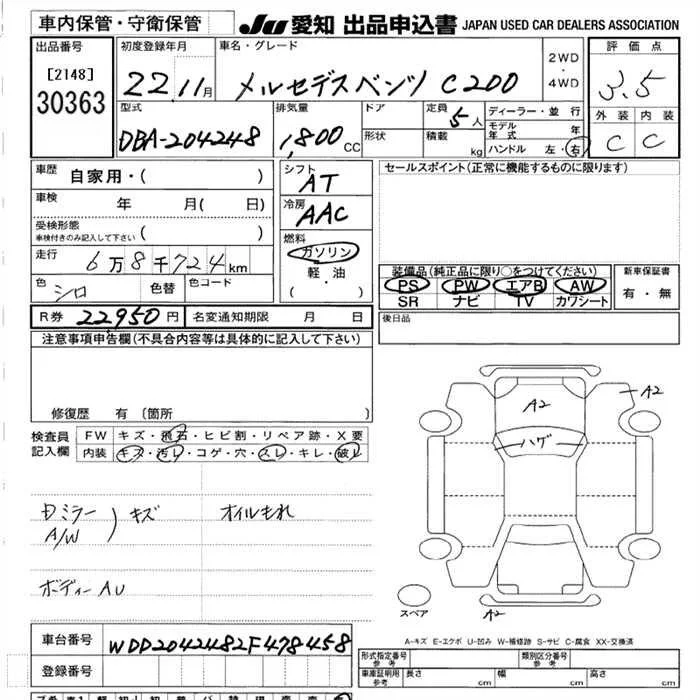 車内保管・守衛保管
JU 愛知 出品申込書 JAPAN USED CAR DEALERS ASSOCIATION
出品番号
[2148]
30363
初度登録年月
22. 11月
車名・グレード
メルセデスベンツ C200
2WD
・
4WD
評価点
3.5
外装 内装
C C
型式
DBA-204248
排気量
1,800 CC
ドア
形状
定員
5人
積載
kg
ディーラー・並行
モデル年式 年
ハンドル 左・右
車歴
自家用・( )
車検
年 月( 日)
受検形態
車検付きのみ記入して下さい ( )
走行
6万8千724km
色
シロ
色替
色コード
シフト
AT
冷房
AAC
燃料
ガソリン
軽・油
( ・ )
セールスポイント(正常に機能するものに限ります)
装備品(純正品に限り○をつけてください)
PS PW エアB AW
SR ナビ TV カワシート
新車保証書
有・無
R券 22,950円
名変通知期限 月 日
後日品
注意事項申告欄(不具合内容等は具体的に記入して下さい)
修復歴 有〔箇所
検査員
記入欄
FW キズ・飛石・ヒビ割・リペア跡・X要
内装 キズ・汚レ・コゲ・穴・スレ・キレ・破レ
ミラー
A/W
キズ
オイルもれ
ボディー AU
A2
A2
ハゲ
A2
スペア
A-キズ E-エクボ U-凹み W-補修跡 S-サビ C-腐食 XX-交換済
車台番号
WDD2042482F478458
登録番号
形式指定番号
参考
類別区分番号
参考
車庫証明用
参考
長さ cm
幅 cm
高さ cm